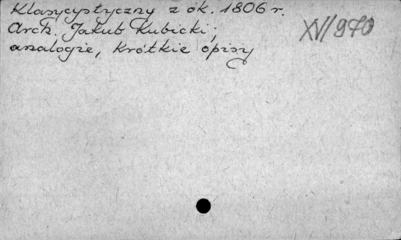 Klasycystyczny z ok. 1806 r.
Arch. Jakub Kubicki;
XV/970
analogie, krótkie opisy